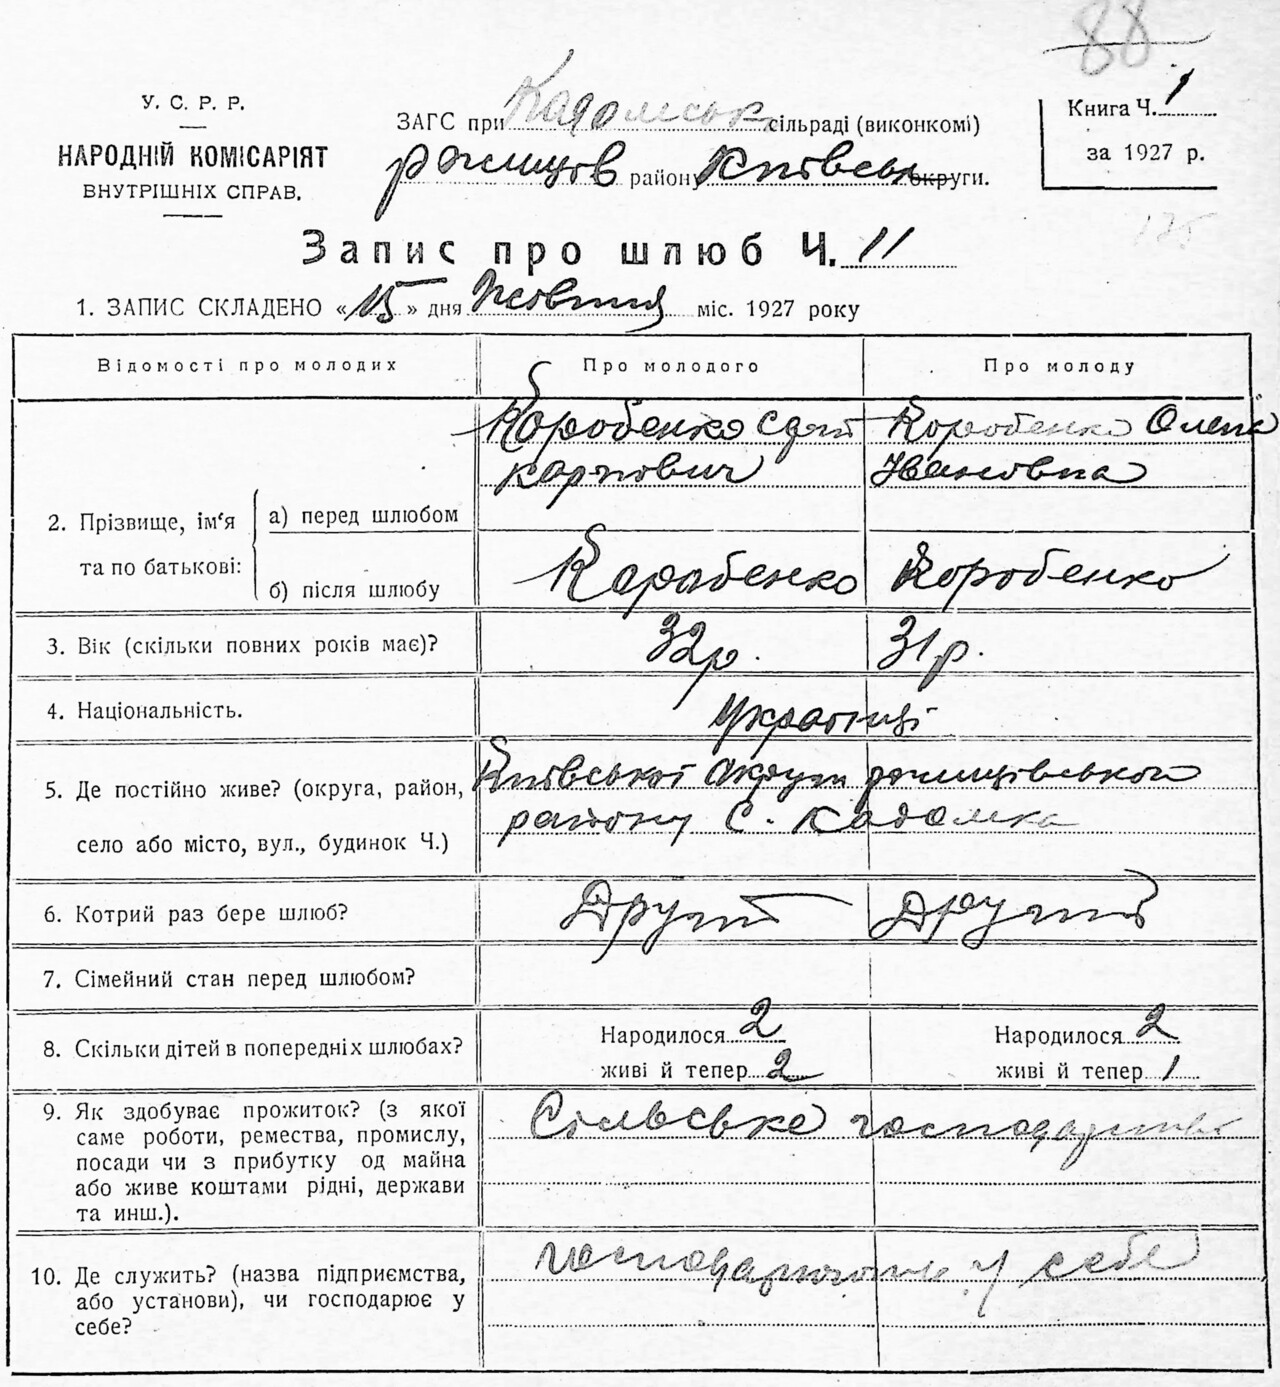 88
У. С. Р. Р.
НАРОДНІЙ КОМІСАРІЯТ
ВНУТРІШНІХ СПРАВ.
ЗАГС при Кадомськ сільраді (виконкомі)
району Київськ округи.
Книга Ч. 1
за 1927 р.
125
Запис про шлюб Ч. 11
1. ЗАПИС СКЛАДЕНО «15» дня Жовтня міс. 1927 року
Відомості про молодих Про молодого Про молоду
2. Прізвище, ім'я та по батькові:
а) перед шлюбом
Коробенко
Карпович
Коробенко Олена
Івановна
б) після шлюбу
Коробенко Коробенко
3. Вік (скільки повних років має)? 32р. 31р.
4. Національність. Українці
5. Де постійно живе? (округа, район,
село або місто, вул., будинок Ч.)
Київської округи
району с. Кадомка
6. Котрий раз бере шлюб? Другий Другий
7. Сімейний стан перед шлюбом?
8. Скільки дітей в попередніх шлюбах?
Народилося 2 Народилося 2
живі й тепер 2 живі й тепер 1
9. Як здобуває прожиток? (з якої
саме роботи, ремества, промислу,
посади чи з прибутку од майна
або живе коштами рідні, держави
та инш.).
Сільське господарство
10. Де служить? (назва підприємства,
або установи), чи господарює у
себе?
у себе